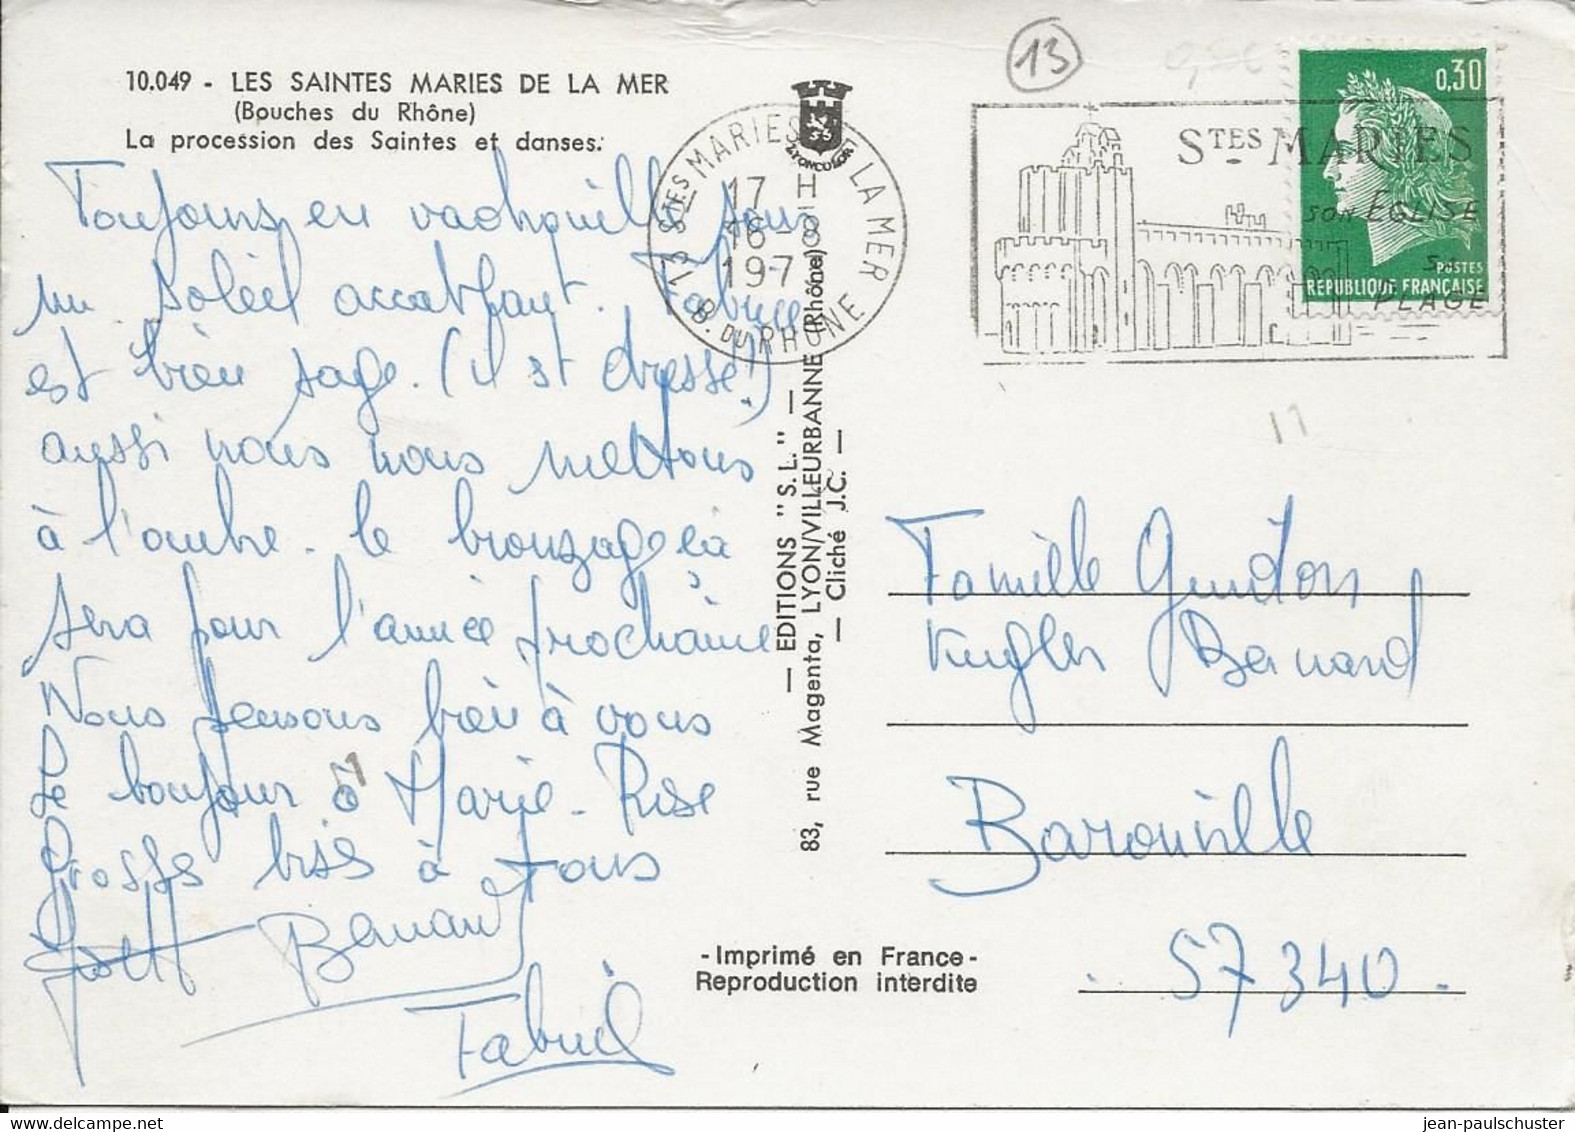 10.049 - LES SAINTES MARIES DE LA MER
(Bouches du Rhône)
La procession des Saintes et danses.
Toujours en vadrouille sous
un soleil accablant. Fabrice
est bien sage. (il st dressé!)
aussi nous nous mettons
à l'ombre. Le bronzage çà
sera pour l'année prochaine
Nous pensons bien à vous
Le bonjour à Marie-Rose
Grosses bises à tous
Bernard
Fabrice
LYONCOLOR
13 STES MARIES DE LA MER
17 H
16-8
197
B. DU RHÔNE
13
STES MARIES
SON EGLISE
SA
PLAGE
0,30
POSTES
REPUBLIQUE FRANÇAISE
11
— EDITIONS "S.L." —
83, rue Magenta, LYON/VILLEURBANNE (Rhône)
— Cliché J.C. —
Famille
Kugler Bernard
Baronville
57340.
-Imprimé en France-
Reproduction interdite
jean-paulschuster